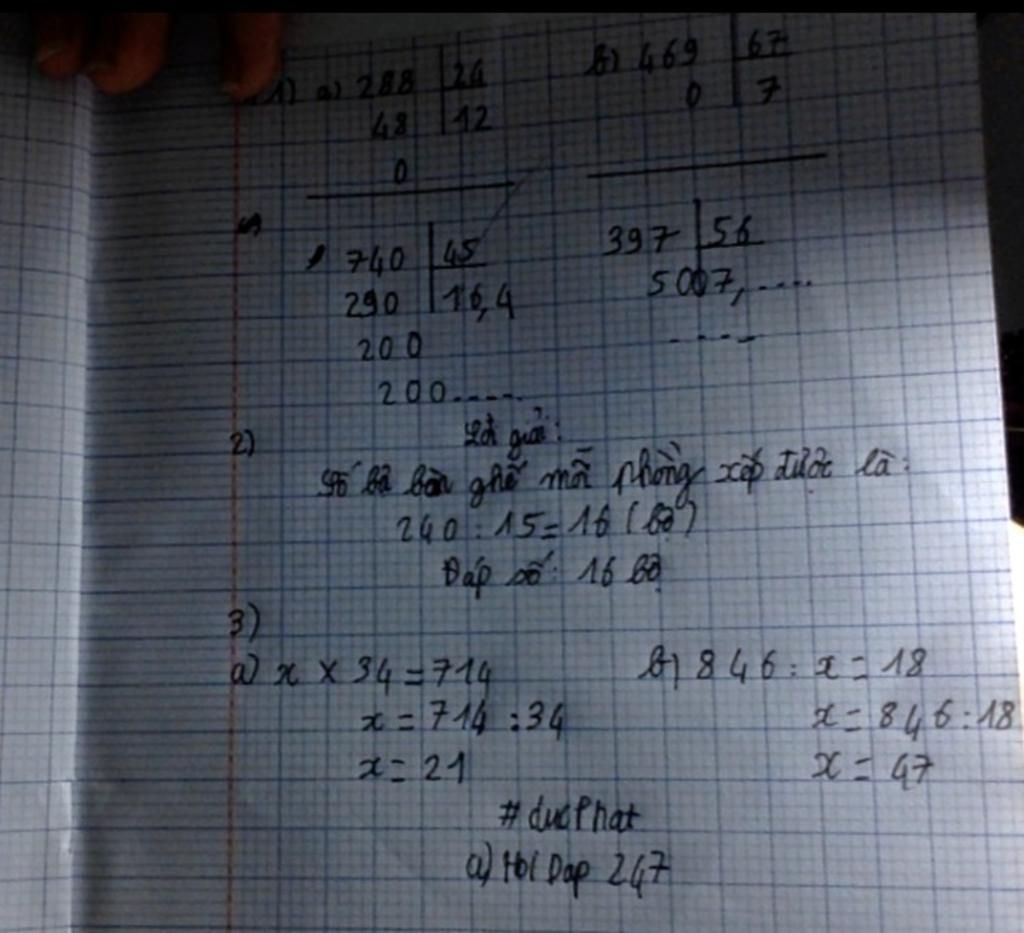 1) a) 288 24 b) 469 67
48 12 0 7
0
740 45 397 56
290 16,4 50 07,....
200 ----
200.....
2) Lời giải:
Số bộ bàn ghế mỗi phòng xếp được là:
240 : 15 = 16 (bộ)
Đáp số: 16 bộ
3)
a) x × 34 = 714 b) 846 : x = 18
x = 714 : 34 x = 846 : 18
x = 21 x = 47
# ducPhat
a) HoI Dap 247